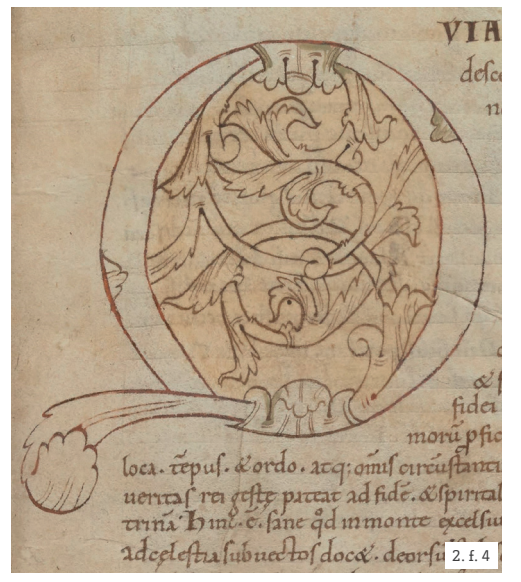 Q
VIA
desce
n
&
fidei
morū pfic
loca. tēpus. & ordo. atq; om̄is circūstanti
veritas rei gestę pateat ad fidē. & spirital
trinā. Hinc. ē. sane qd in monte excelsu
ad cęlestia subvectos doc&. deorsu
2. f. 4